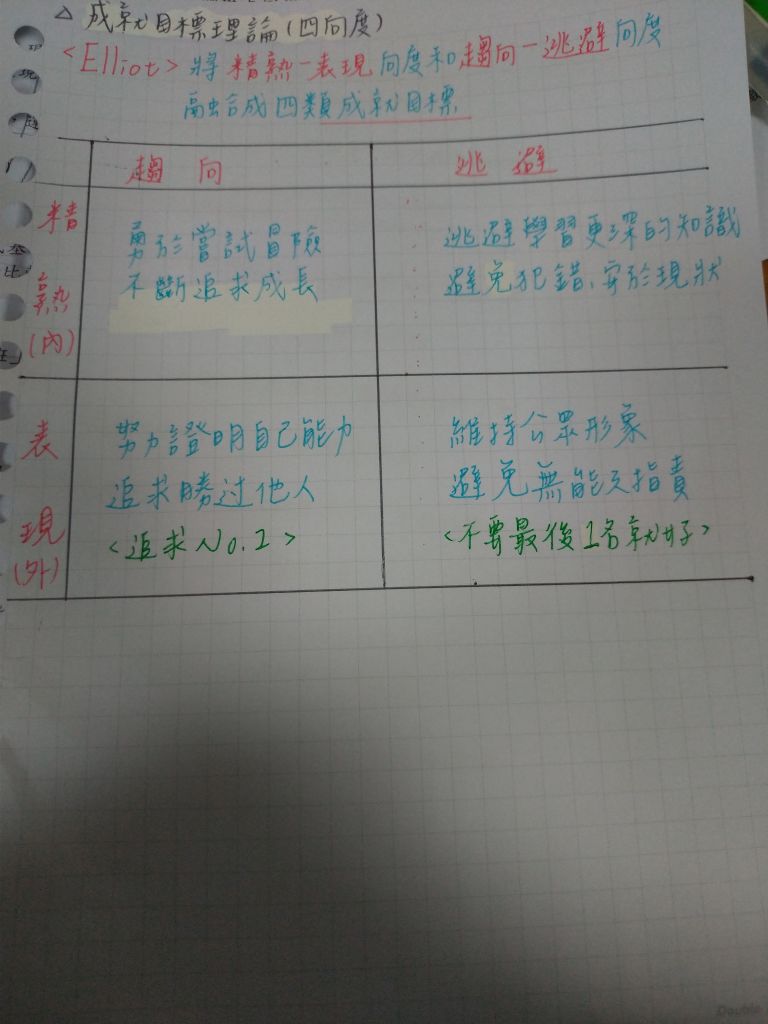 △ 成就目標理論(四向度)
<Elliot> 將精熟-表現向度和趨向-逃避向度
融合成四類成就目標
趨 向
逃 避
精熟(內)
勇於嘗試冒險
不斷追求成長
逃避學習更深的知識
避免犯錯、安於現狀
表現(外)
努力證明自己能力
追求勝过他人
<追求No.1>
維持公眾形象
避免無能及指責
<不要最後1名就好>
Double